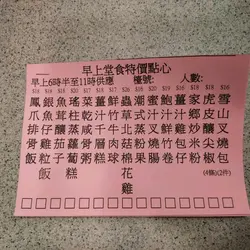 早上堂食特價點心
早上6時半至11時供應 檯號: 人數:
鳳爪排骨飯
銀魚仔雞粒飯
魚茸釀茄子
瑤柱蒸蘿蔔糕
菜乾咸骨粥
薑汁千層糕
鮮竹牛肉球
蟲草北菇棉花雞
潮式蒸粉果
蜜汁叉燒腸
鮑汁鮮竹卷
薑汁
家鄉炒米粉
虎皮釀尖椒
雪山叉燒包
(2件)